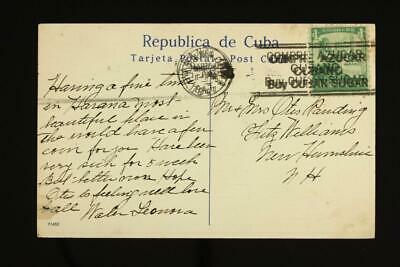 Republica de Cuba
Tarjeta Postal Post C
COMPRE AZUCAR
CUBANO
BUY CUBAN SUGAR
Having a fine time
in Havana most
beautiful place in
the world have a fine
for you Have been
very sick for 5 week
But better now Hope
Otis is feeling well love
to all Leonora
Mr & Mrs Otis
Fitz Williams
New Hampshire
N H